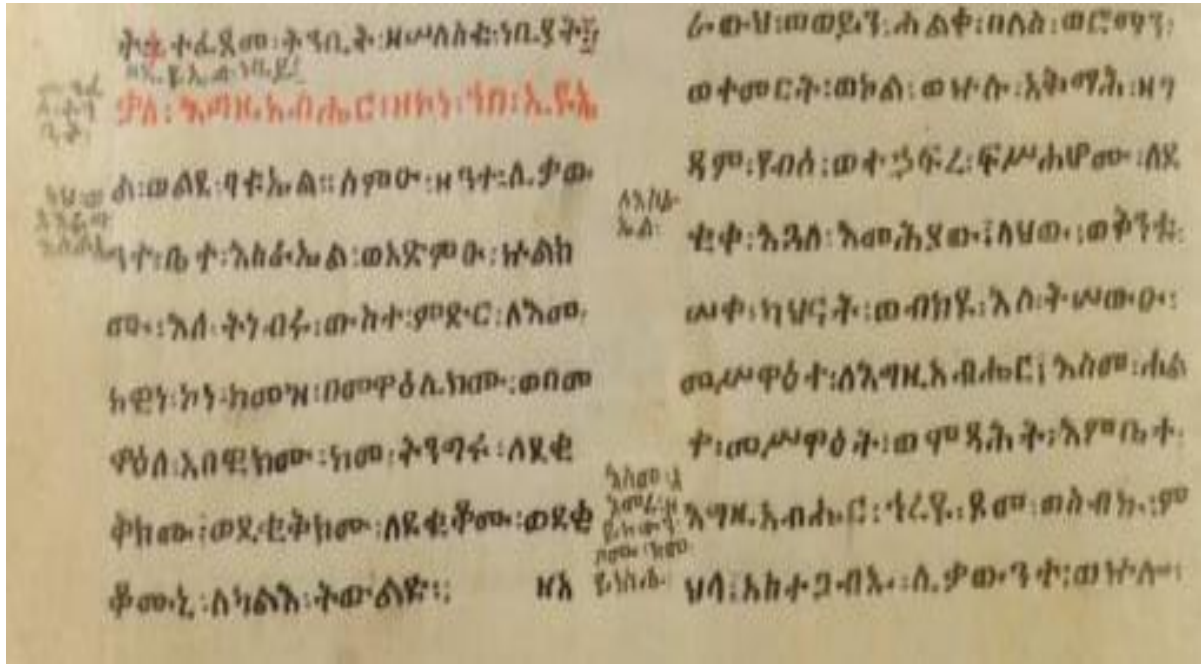 ተፈጸመ፡ትንቢት፡ዘሠለስቱ፡ነቢያት፡
ቃለ፡እግዚአብሔር፡ዘኮነ፡ኀበ፡ኢዩኤ
ል፡ወልደ፡ባቱኤል፡፡ስምዑ፡ዘንተ፡ሊቃው
ንተ፡ቤተ፡እስራኤል፡ወአድምዑ፡ኵልክ
ሙ፡እለ፡ትነብሩ፡ውስተ፡ምድር፡ለእመ፡
ከዊነ፡ኮነ፡ከመዝ፡በመዋዕሊክሙ፡ወበመ
ዋዕለ፡አበዊክሙ፡ከመ፡ትንግሩ፡ለደቂ
ቅክሙ፡ወደቂቅክሙ፡ለደቂቆሙ፡ወደቂ
ቆሙኒ፡ለካልእ፡ትውልድ፡፡ ዘእ
ራውህ፡መወይን፡ሐልቀ፡በለስ፡ወሮማን፡
ወተመርት፡ወኮል፡ወኵሉ፡አቅማሕ፡ዘገ
ዳም፡የብሰ፡ወተኃፍረ፡ፍሥሐሆሙ፡ለደ
ለእስራ
ኤል፡
ቂቀ፡እጓለ፡እመሕያው፡ላህው፡ወቅንቱ፡
ሠቀ፡ካህናት፡ወብክዩ፡እለ፡ትሠውዑ፡
መሥዋዕተ፡ለእግዚአብሔር፡እስመ፡ሐል
ቀ፡መሥዋዕት፡ወሞጻሕት፡እምቤተ፡
እግዚአብሔር፡ኅረዩ፡ጾመ፡ወስብኩ፡ም
ህላ፡አስተጋብኡ፡ሊቃውንተ፡ወኵሎ፡